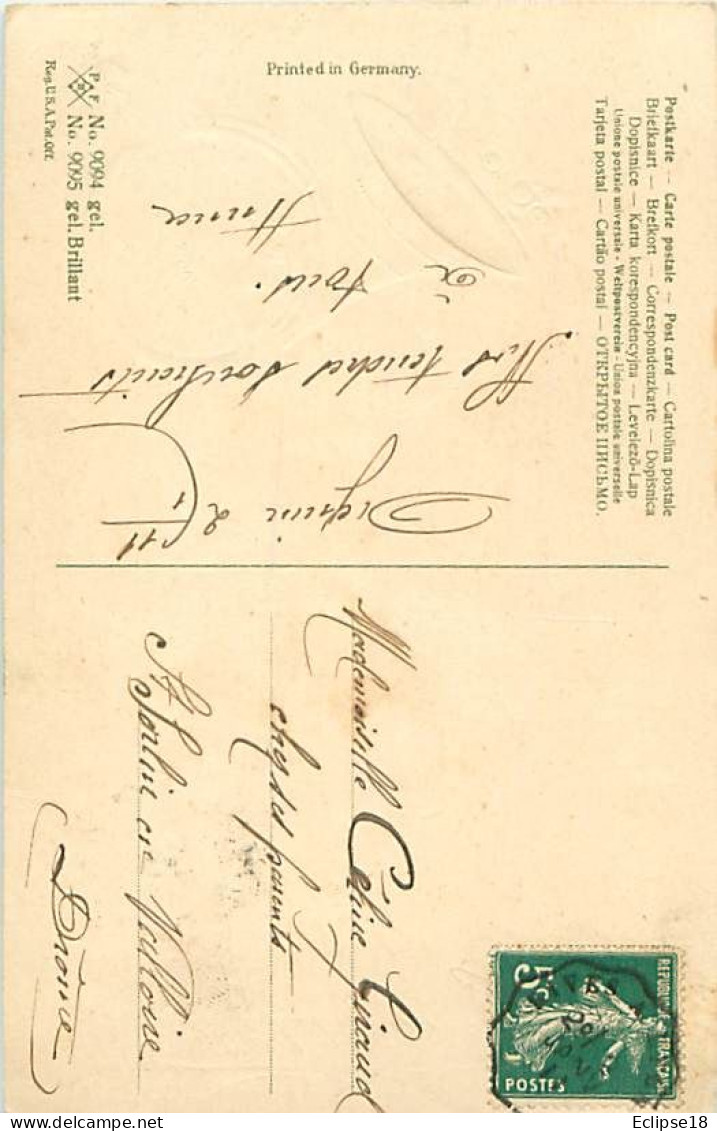 Postkarte — Carte postale — Post card — Cartolina postale
Briefkaart — Brefkort — Correspondenzkarte — Dopisnica
Dopisnice — Karta korespondencyjna — Levelező-Lap
Unione postale universale - Weltpostverein - Union postale universelle
Tarjeta postal — Cartão postal — ОТКРЫТОЕ ПИСЬМО.
Printed in Germany.
P F B No. 9094 gel.
No. 9095 gel. Brillant
Reg. U. S. A. Pat. Off.
2
11
Mes tendres souhaits
à tous.
Anna
Mademoiselle Céline Giraud
chez ses parents
St Sorlin en Valloire
Drôme
REPUBLIQUE FRANÇAISE
5c
POSTES
Eclipse18